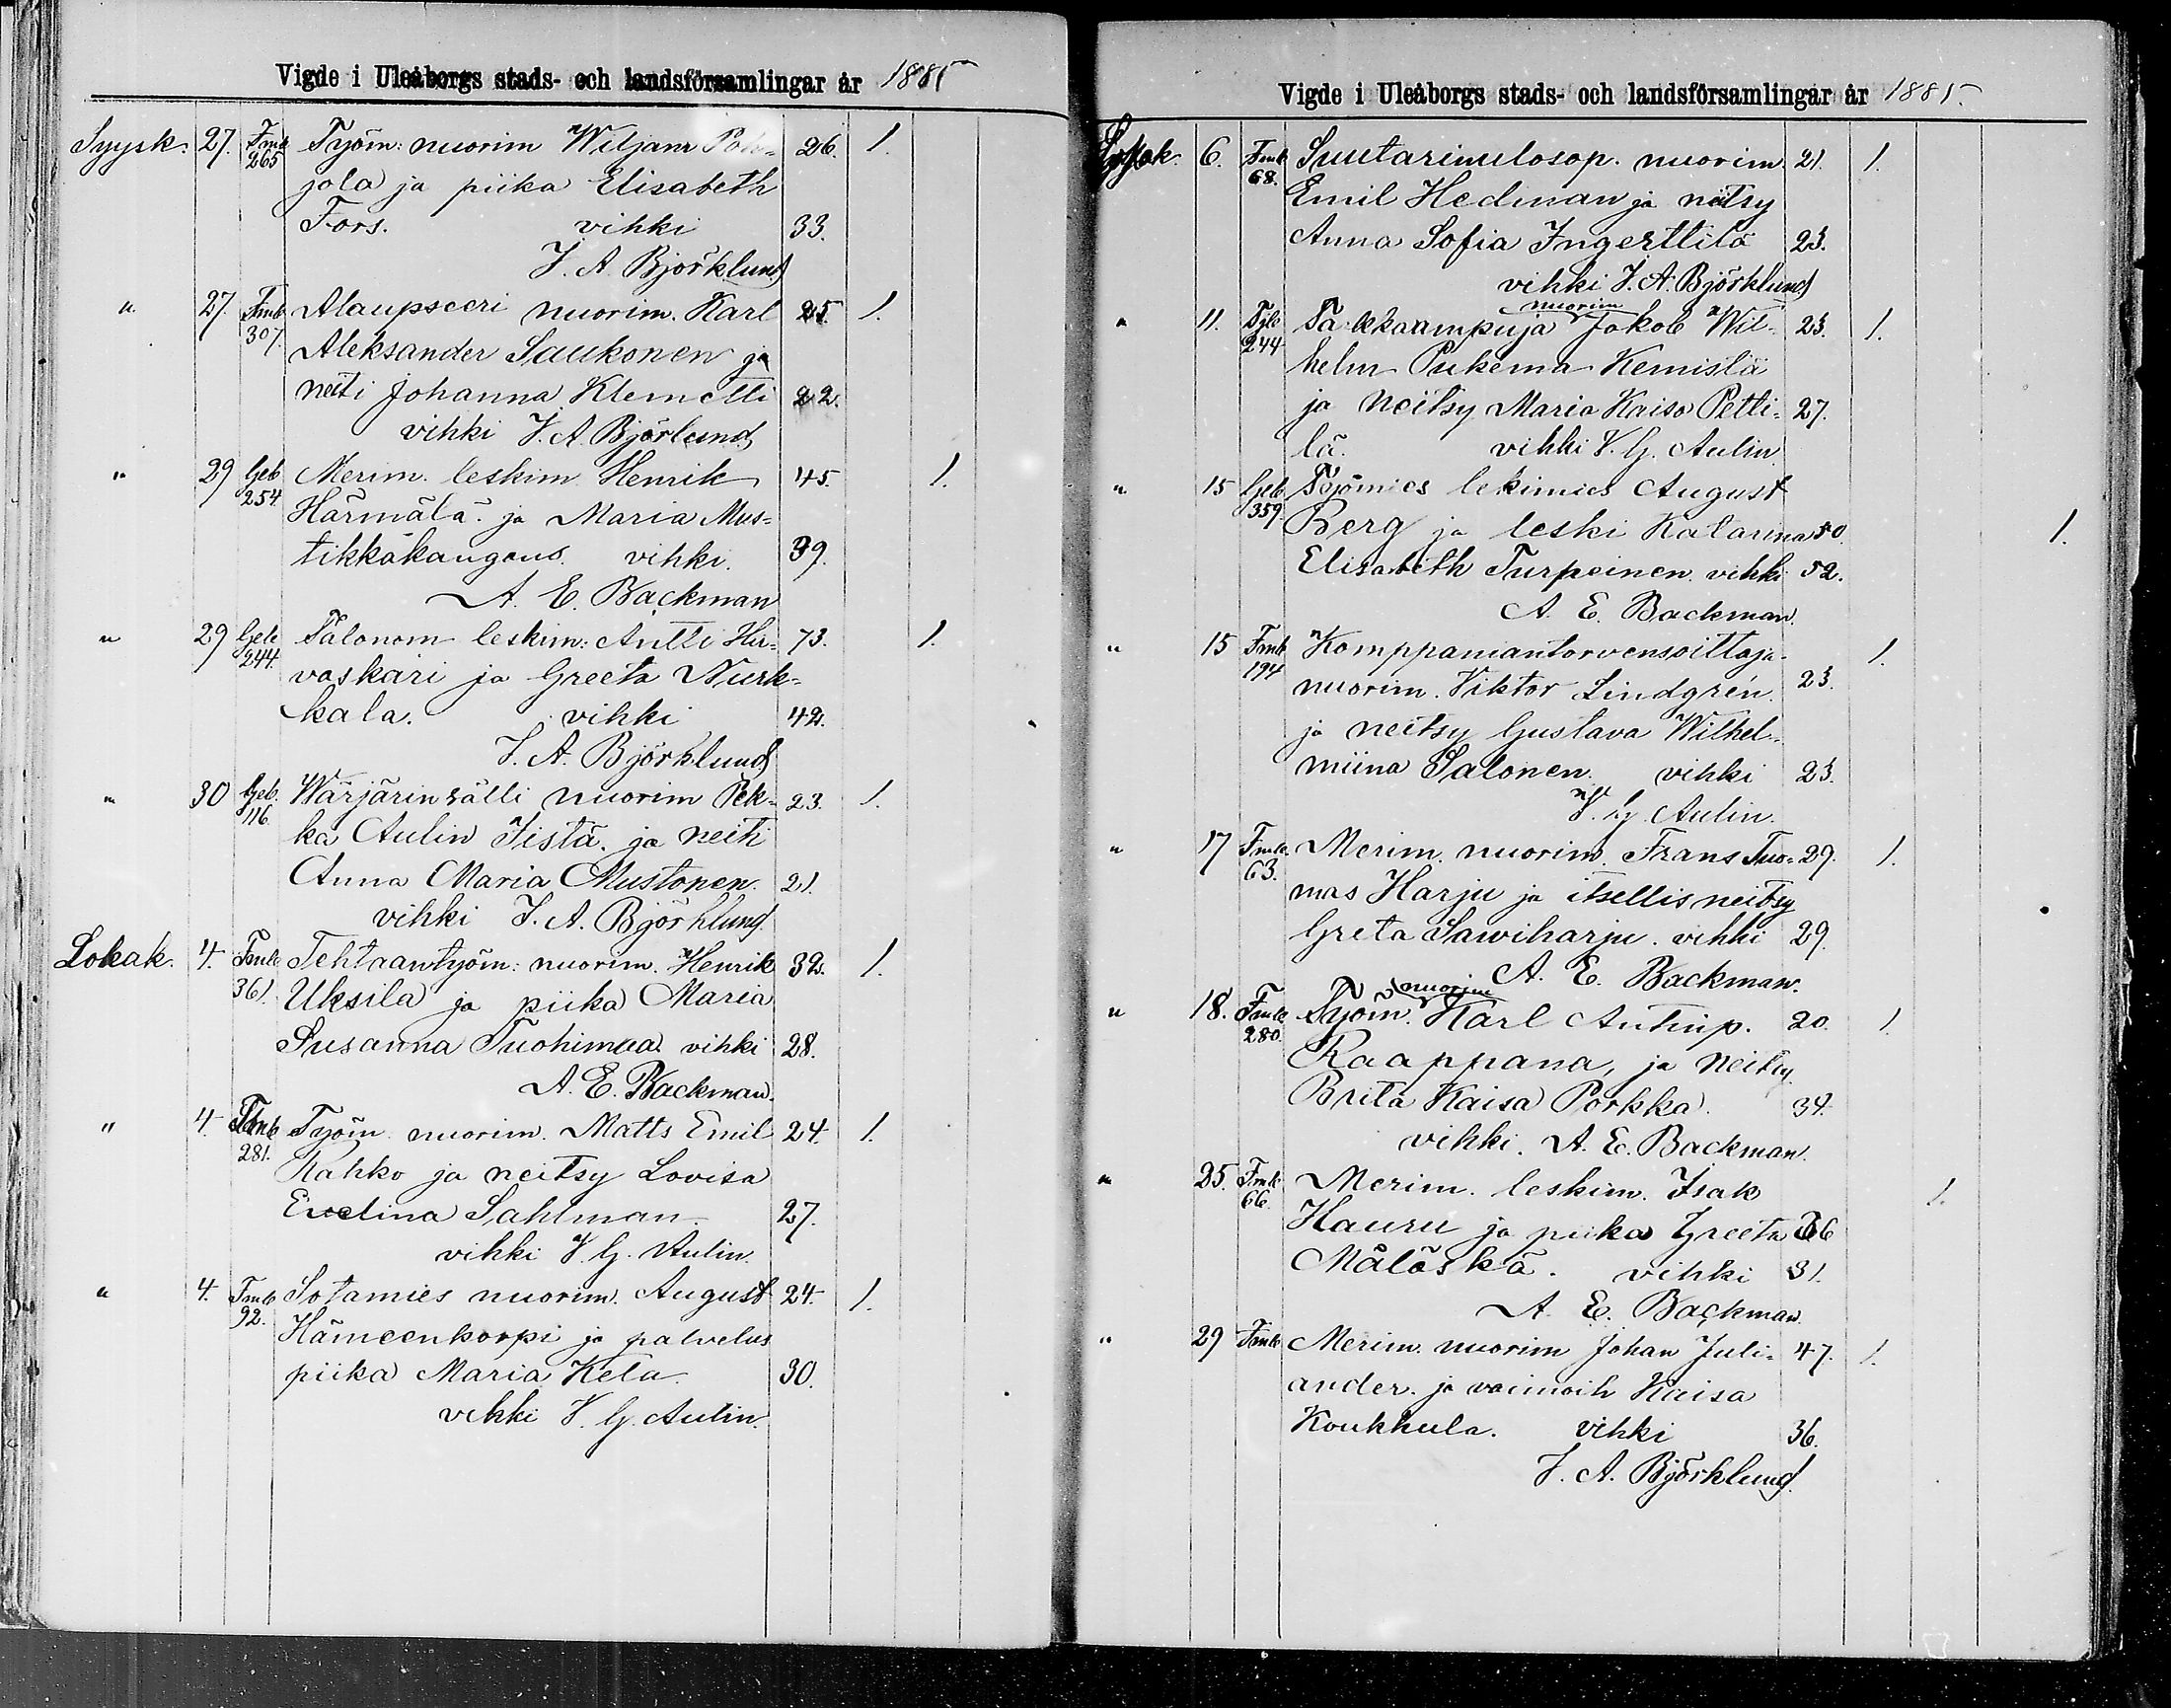 Vigde i Uleåborgs stads- och landsförsamlingar år 1885
Syysk. 27. Fmb Työm: nuorim Wiljam Poh= 26. 1.
265 jola ja piika Elisabeth
Fors. vihki 33.
J. A. Björklund
" 27. Fmb Alaupseeri nuorim. Karl 25. 1.
307. Aleksander Saukonen ja
neiti Johanna Klemetti 22.
vihki J. A. Björlund
" 29 Geb Merim. leskim Henrik 45. 1.
254 Härmälä. ja Maria Mus=
tikkakangas. vihki. 39.
A. E. Backman
" 29 Geb Talonom leskim: Antti Hir= 73. 1.
244. vaskari ja Greeta Nurk=
kala. vihki 42.
J. A. Björklund
" 30 Geb. Wärjärinsälli nuorim Pek= 23. 1.
116. ka Aulin Iistä. ja neiti
Anna Maria Mustonen. 21.
vihki J. A. Björklund.
Lokak. 4. Fmb Tehtaantyöm: nuorim. Henrik 32. 1.
361. Uksila ja piika Maria
Susanna Tuohimaa. vihki 28.
A. E. Backman.
" 4. Fmb Työm nuorim. Matts Emil 24. 1.
281. Rahko ja neitsy Lovisa
Evelina Sahlman. 27.
vihki V. G. Aulin.
" 4. Fmb Sotamies nuorim. August 24. 1.
92. Hämeenkorpi ja palvelus
piika Maria Kela. 30.
vihki V. G. Aulin.
Vigde i Uleåborgs stads- och landsförsamlingar år 1885.
Lokak. 6. Fmb Suutarinulosop. nuorim. 21. 1.
68. Emil Hedman ja neitsy
Anna Sofia Ingerttilä 23.
vihki J. A. Björklund
nuorim
" 11. 244 Takkaampuja Jakob Wil= 23. 1.
helm Pukema Kemistä
ja neitsy Maria Kaisa Petti= 27.
lä. vihki V. G. Aulin.
" 15 Geb Työmies leskimies August
359. Berg ja leski Katarina 50. 1.
Elisabeth Turpeinen. vihki 52.
A. E. Backman.
" 15 Fmb Komppaniantorvensoittaja 1.
194 nuorim. Viktor Lindgrén. 23.
ja neitsy Gustava Wilhel=
miina Salonen. vihki 23.
V. G. Aulin.
" 17 Fmb. Merim. nuorim. Frans Tuo= 29. 1.
63. mas Harju ja itsellisneitsy
Greta Sawiharju. vihki 29.
A. E. Backman.
nuorim
" 18. Fmb. Työm. Karl Antinp. 20. 1.
280. Raappana, ja neitsy
Brita Kaisa Porkka. 34.
vihki. A. E. Backman.
" 25. Fmb Merim. leskim. Isak 1.
66. Hauru ja piika Greeta 36
Määläskä. vihki 31.
A. E. Backman.
" 29 Fmb Merim. nuorim Johan Juli= 47. 1.
ander. ja vaimoih Kaisa
Koukkula. vihki 36.
J. A. Björklund.